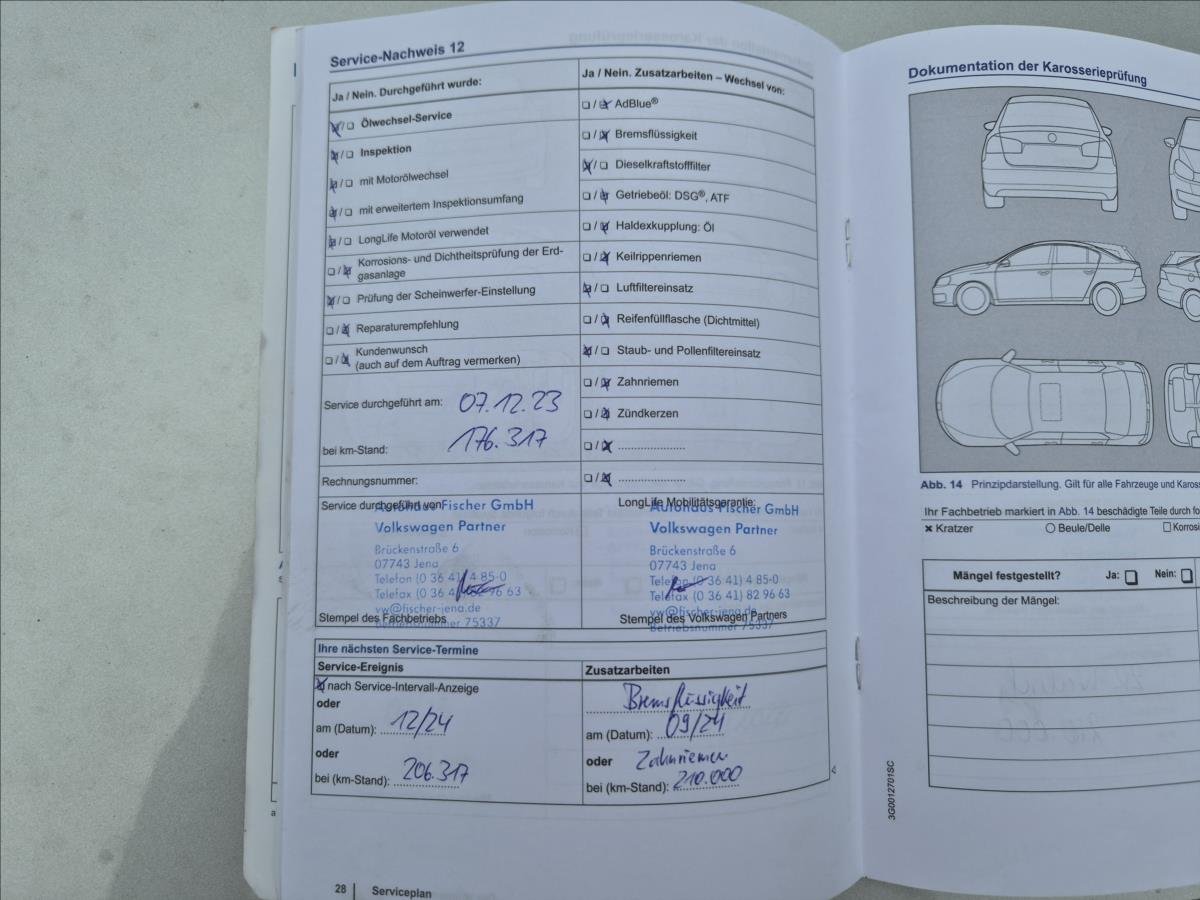 Service-Nachweis 12
Ja / Nein. Durchgeführt wurde:
Ölwechsel-Service
Inspektion
mit Motorölwechsel
mit erweitertem Inspektionsumfang
LongLife Motoröl verwendet
Korrosions- und Dichtheitsprüfung der Erd-
gasanlage
Prüfung der Scheinwerfer-Einstellung
Reparaturempfehlung
Kundenwunsch
(auch auf dem Auftrag vermerken)
Service durchgeführt am: 07.12.23
bei km-Stand: 176.317
Rechnungsnummer:
Ja / Nein. Zusatzarbeiten – Wechsel von:
AdBlue®
Bremsflüssigkeit
Dieselkraftstofffilter
Getriebeöl: DSG®, ATF
Haldexkupplung: Öl
Keilrippenriemen
Luftfiltereinsatz
Reifenfüllflasche (Dichtmittel)
Staub- und Pollenfiltereinsatz
Zahnriemen
Zündkerzen
Service durchgeführt von:
Autohaus Fischer GmbH
Volkswagen Partner
Brückenstraße 6
07743 Jena
Telefon (0 36 41) 4 85-0
Telefax (0 36 41) 82 96 63
vw@fischer-jena.de
Betriebsnummer 75337
Stempel des Fachbetriebs
LongLife Mobilitätsgarantie:
Autohaus Fischer GmbH
Volkswagen Partner
Brückenstraße 6
07743 Jena
Telefon (0 36 41) 4 85-0
Telefax (0 36 41) 82 96 63
vw@fischer-jena.de
Betriebsnummer 75337
Stempel des Volkswagen Partners
Ihre nächsten Service-Termine
Service-Ereignis
nach Service-Intervall-Anzeige
oder
am (Datum): 12/24
oder
bei (km-Stand): 206.317
Zusatzarbeiten
Bremsflüssigkeit
am (Datum): 09/24
oder Zahnriemen
bei (km-Stand): 210.000
28 Serviceplan
Dokumentation der Karosserieprüfung
Abb. 14 Prinzipdarstellung. Gilt für alle Fahrzeuge und Kaross
Ihr Fachbetrieb markiert in Abb. 14 beschädigte Teile durch fo
Kratzer Beule/Delle Korrosi
Mängel festgestellt? Ja: Nein:
Beschreibung der Mängel:
3G0012701SC